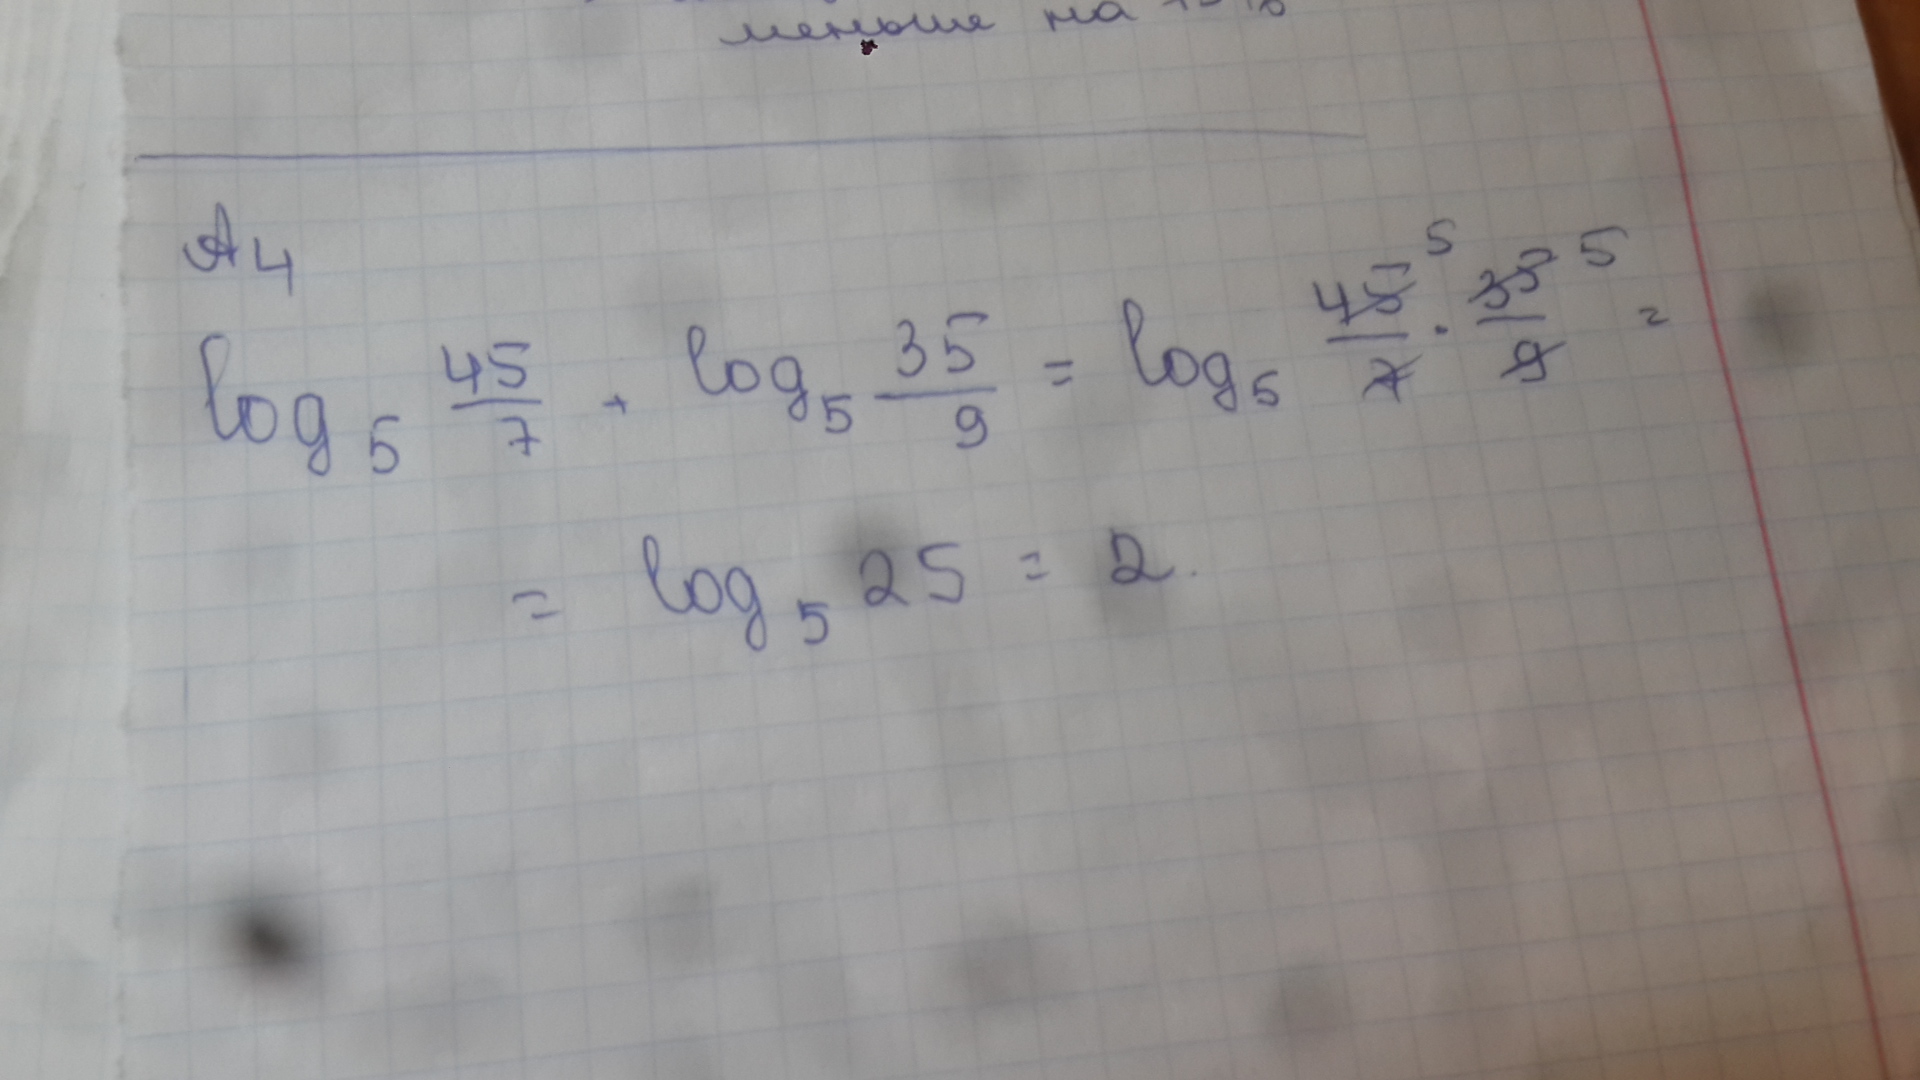 меньше на
А4
log₅ 45/7 + log₅ 35/9 = log₅ 45/7 · 35/9 =
5 5
= log₅ 25 = 2.